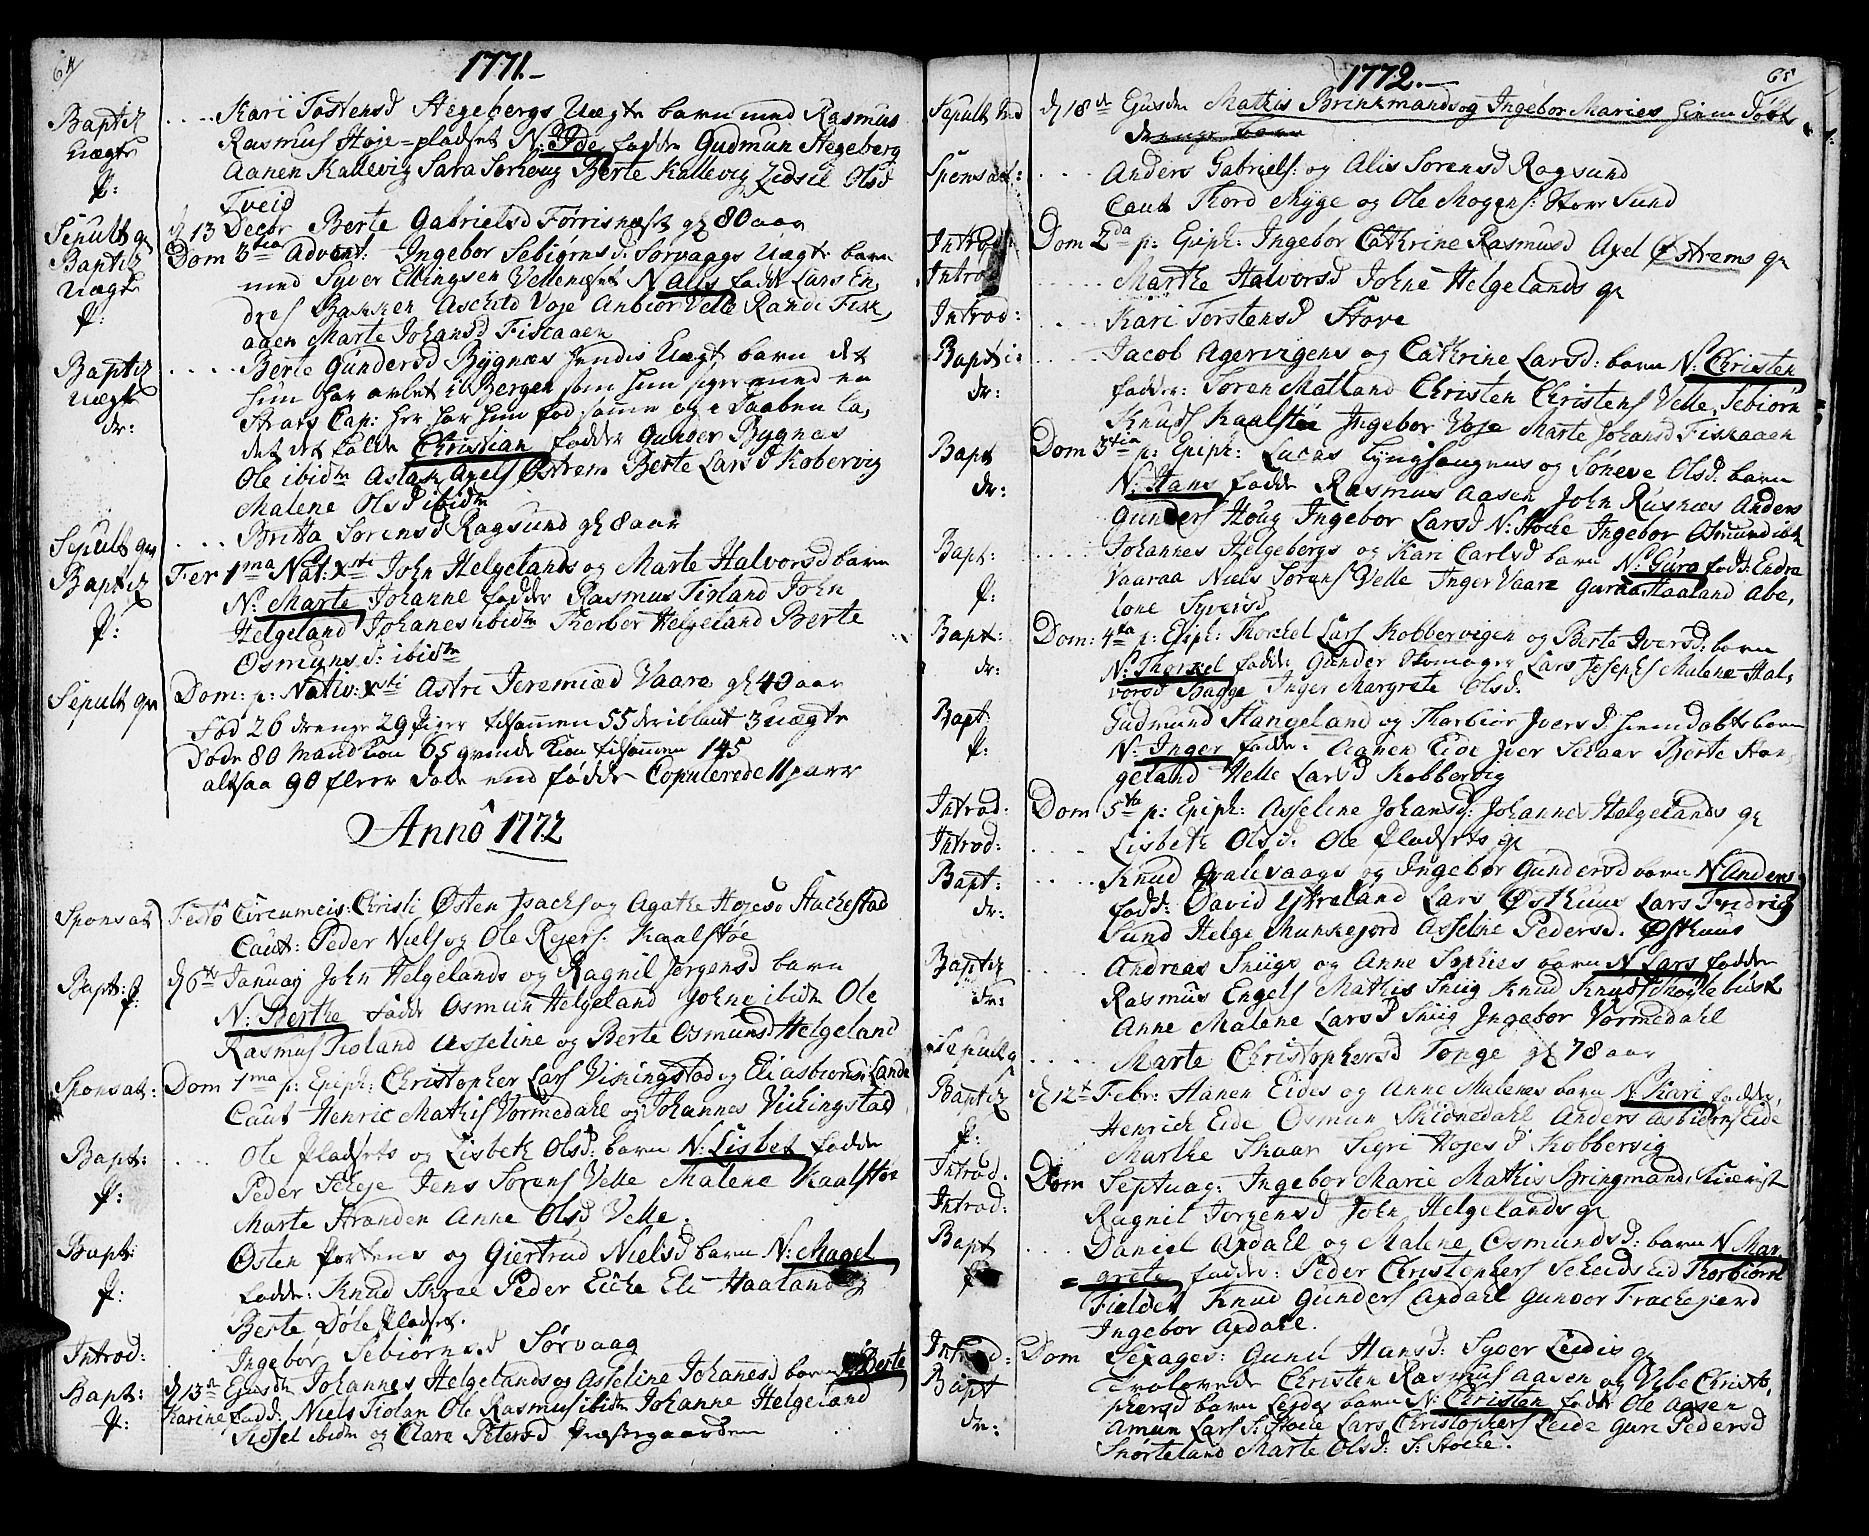 64
1771.
Baptiz .... Kari Tostensd Hegebergs Uægte barn med Rasmus
Uægte Rasmus Høie-pladset N: Ide fadde Gudmun Hegeberg
p: Aanen Kallevig Sara Sørhoug Berte Kallevig Zidsil Olsd
Tveid
Sepult qn d 13 Decbr Berte Gabrielsd Førrisnæs gl 80 aar
Baptiz Dom 3tia Advent: Ingebor Sebiørnsd. Sørvaags Uægte barn
Uægte med Syver Ellingsen Vellenæset N Alis fadde Lars En
p: dres Bakken Aschild Voje Anbior Velle Rande Fisk,
aaen Marte Johansd Fiscaaen
Baptiz ..... Berte Gundersd Bygnæs hendis Uægte barn det
Uægte hun har avlet i Bergen som hun siger med en
dr: Strats Cap: her har hun fød samme og i Daaben la,
det det kalde Christian fadder Gunder Bygnæs
Ole ibidm Aslak Axels Østrem Berte Larsd Kobervig
Malene Olsd ibidm
Sepult qn .... Britta Sørensd Ragsund gl 8 aar
Baptiz Fer 1ma Nat: Xsti John Helgelands og Marte Halvorsd barn
p: N: Marte Johanne fadde Rasmus Tioland John
Helgeland Johanes ibidm Therber Helgeland Berte
Osmunsd: ibidm
Sepult qn Dom: p: Nativ: Xsti Astri Jeremiæd Vaara gl 40 aar
Fød 26 drenge 29 Piger tilsammen 55 deriblant 3 uægte
Døde 80 Mandkion 65 qvindekion tilsammen 145
altsaa 90 fleer døde end fødde Copulerede 11 par
Anno 1772
Sponsat Festo Circumcis: Christi Østen Isachs og Agathe Hojesd Stackestad
Caut: Peder Niels og Ole Rejers. Kaalstoe
Bapt: p: d 6te Januarj John Helgelands og Ragnil Jørgensd barn
N: Berthe fadde Osmun Helgeland Johne ibidm Ole
Rasmus Tioland Asseline og Berte Osmunsd Helgeland
Sponsat: Dom 1ma p: Epiph: Christopher Lars Vishingstad og Eli Asbiornsd Lande
Caut Henric Mathis Vormedahl og Johannes Vickingstad
Bapt: ... Ole Pladsets og Lisbeth Olsd: barn N: Lisbet fadde
p: Peder Jens Sørens Velle Malene Kaalstoe
Marte Stranden Anne Olsd Velle.
Bapt: Østen Portens og Giertrud Nielsd barn N: Magel
p: fadde: Knud Skræ Peder Eicke Eli Haaland og
Berte Døle Pladset.
Introd: Ingebor Sebiørnsd Sørvaag
Bapt: d 13de Ejusdm Johannes Helgelands og Asseline Johannesd barn N Berte
p: Karine fadd: Niels Tiolan Ole Rasmus ibidm Johanne Helgeland
Sidsel ibidm og Clara Petersd Præstegaarden
1772.
65
Sepult d 18de Ejusdm Mathis Brinkmands og Ingebor Maries hiemdøbt
drenge barn
Sponsat: .... Anders Gabriels: og Alis Sørensd Ragsund
Caut Thord Mygge og Ole Mogens: Store Sund
Introd Dom 2da p: Epiph: Ingebor Cathrine Rasmusd Axel Østrems qn
Introd ..... Marthe Halvorsd Johne Helgelands qn
Introd: .... Kari Torstensd Stove
Bapti: .... Jacob Agervigens og Cathrine Larsd: barn N: Christen
dr: fadder: Søren Matland Christen Christens Velle, Sebiørn
Knuds Kaalstøe Ingebor Voje Marte Johansd Fiskaaen
Bapt Dom 3tia p: Epiph: Lucas Lyngsougens og Søneve Olsd. barn
dr: N: Hans fadde Rasmus Aasen John Rusnæs Anders
Gunders Houg Ingebor Larsd N: Stocke Ingebor Osmund ibd
Bapt: ..... Johannes Helgebergs og Kari Carlsd barn N: Guro fadd: Endre
p: Vaaraa Niels Sørens Velle Inger Vaara Guraa Haaland Abe,
lone Syveisd
Bapt: Dom: 4ta p: Epiph: Thorchel Lars Kobbervigen og Berte Iversd: barn
dr: N: Thorkel fadde: Gunder Skomager Lars Josephs Malene Hal,
vorsd Bugge Inger Margrete Olsd.
Bapt Gudmund Stangeland og Tharbior Joersd hiemdøbte barn
p: N: Inger fadde: Aanen Eide Joer Skaar Berte Stan,
geland Helle Larsd Kobbervig
Introd: Dom 5ta p: Epiph: Asseline Johansd: Johannes Helgelands qn
Introd: .... Lisbeth Olsd. Ole Pladsets qn
Bapt: ..... Knud Qvalevaags og Ingebor Gundersd barn N Anders
dr: fadd: David Ytreland Lars Østhuus Lars Fredrich
Sund Helge Munkejord Asseline Pedersd. Østhuus
Baptiz .... Andreas Sniigs og Anne Sophies barn N Lars fadde
dr: Rasmus Engels Mathis Sniig Knud Knuds Moglebust
Anne Malene Larsd Sniig Ingebor Vormedahl
Sepult q .... Marte Christophersd Tonge gl 78 aar
Baptiz d 12te Febr: Hanen Eides og Anne Malenes barn N: Kari fadde,
p: Henrich Eide Osmun Skionedahl Anders Asbiørns Eide
Marthe Skaar Sigri Hojesd Kobbervig
Introd. Dom Septuag: Ingebor Marie Mathis Springmand,
Introd: Ragnil Jørgensd John Helgelands qn
Bapt .... Daniel Axdahl og Malene Osmundsd: barn N Mar,
p: =grete fadde: Peder Christophers Scheids Eid Thorbiørn
Fieldes Knud Gunders Axdahl Gundor Frackegierd
Ingebor Axdahl.
Introd: Dom Sexages: Gunil Hansd: Syver Leidis qn
Bapt Trolovede Christen Rasmus Aasen og Vibe Christo,
dr: phersd barn Leides barn N: Christen fadde Ole Aasen
Amun Lars S: Stocke Lars Christophers Leide Guri Pedersd
Snørteland Marte Olsd: S: Stocke.